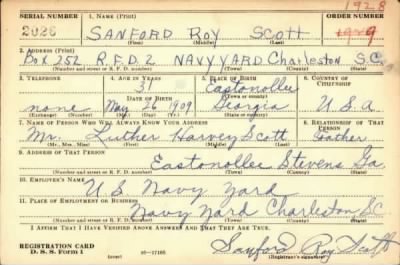 1928
SERIAL NUMBER 1. NAME (Print) ORDER NUMBER
2026 SANFORD ROY SCOTT
(First) (Middle) (Last)
2. ADDRESS (Print)
Box 252 R.F.D. 2 NAVY YARD Charleston S.C.
(Number and street or R. F. D. number) (Town) (County) (State)
3. TELEPHONE 4. AGE IN YEARS 5. PLACE OF BIRTH 6. COUNTRY OF CITIZENSHIP
31 Eastonollee
DATE OF BIRTH (Town or county)
none May 26 1909 Georgia U.S.A
(Exchange) (Number) (Mo.) (Day) (Yr.) (State or country)
7. NAME OF PERSON WHO WILL ALWAYS KNOW YOUR ADDRESS 8. RELATIONSHIP OF THAT PERSON
Mr. Luther Harvey Scott Father
(Mr., Mrs., Miss) (First) (Middle) (Last)
9. ADDRESS OF THAT PERSON
Eastonollee Stevens Ga.
(Number and street or R. F. D. number) (Town) (County) (State)
10. EMPLOYER'S NAME
U S Navy Yard
11. PLACE OF EMPLOYMENT OR BUSINESS
Navy Yard Charleston SC
(Number and street or R. F. D. number) (Town) (County) (State)
I AFFIRM THAT I HAVE VERIFIED ABOVE ANSWERS AND THAT THEY ARE TRUE.
REGISTRATION CARD
D. S. S. Form 1 (over) 16—17105 Sanford Roy Scott